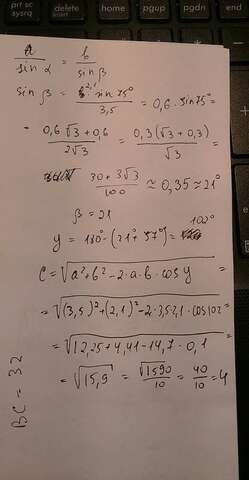 prt sc sysrq
delete
insert
home
pgup
pgdn
a / sin α = b / sin β
sin β = 2,1 · sin 75° / 3,5 = 0,6 · sin 75° =
= 0,6 √3 + 0,6 / 2√3 = 0,3(√3 + 0,3) / √3 =
30 + 3√3 / 100 ≈ 0,35 ≈ 21°
β = 21
γ = 180° - (21° + 57°) = 102°
c = √a² + b² - 2 · a · b · cos γ =
= √(3,5)² + (2,1)² - 2 · 3,5 2,1 · cos 102
= √12,25 + 4,41 - 14,7 · 0,1 =
= √15,9 = √1590 / 10 = 40 / 10 = 4
BC = 32